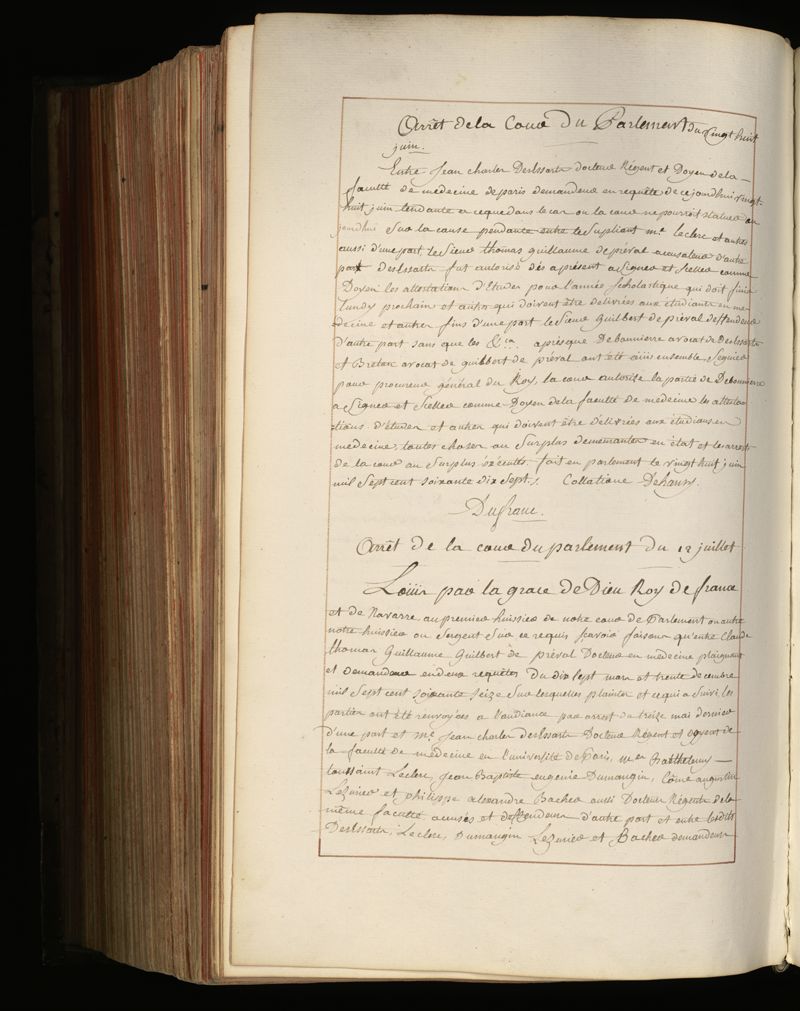 Arrêt de la Cour du Parlement du Vingt huit
juin.
Entre Jean charles Desessarts docteur Régent et Doyen de la
faculté de médecine de paris demandeur en requête de ce jourdhui vingt-
huit juin tendante a ce que dans le cas ou la cour ne pourroit statuer au
jourdhui Sur la cause pendante entre le Supliant me. leclerc et autres
aussi d'une part le Sieur thomas guillaume de préval accusateur d'autre
part Desessarts fut autorisé dès aprésent a Signer et Sceller comme
Doyen les attestations d'Etudes pour l'année Scholastique qui doit finir
lundy prochain et autres qui doivent être délivrées aux étudiants en mé-
decine et autres fins d'une part le Sieur Guilbert de préval deffendeur
d'autre part sans que les &ca. après que Debonnierre avocat de Desessarts
et Breton avocat de guilbert de préval ont été ouis ensemble Seguier
pour procureur général du Roy, la cour autorise la partie de Debonnierre
a Signer et Sceller comme Doyen de la faculté de médecine les attesta-
tions d'études et autres qui doivent être délivrées aux étudians en
medecine, toutes choses au Surplus demeurantes en état et les arrets
de la cour au Surplus éxécutés. fait en parlement le vingt huit juin
mil Sept cent soixante dix Sept. Collationé Dehansy.
Dufranc.
Arrêt de la cour du parlement du 12 juillet
Loüis par la grace de Dieu Roy de france
et de Navarre au premier huissier de notre cour de Parlement ou autre
notre huissier ou Sergent Sur ce requis Scavoir faisons qu'entre Claude
thomas Guillaume Guilbert de préval Docteur en médecine plaignant
et demandeur en deux requêtes du dix Sept mars et trente decembre
mil Sept cent soixante Seize Sur lesquelles plaintes et ce qui a Suivi les
parties ont été renvoyées a l'audiance par arrest du treize mai dernier
d'une part et me. Jean charles desessarts Docteur Régent et doyen de
la faculté de médecine en l'université de Paris, mes Barthelemy
toussaint Leclerc, Jean Baptiste eugenie Dumangin, Côme augustin
Lezurier et philippe alexandre Bacher aussi Docteurs Régents de la
même faculté accusés et deffendeurs d'autre part et entre lesdits
Desessarts, Leclerc, Dumangin Lezurier et Bacher demandeurs